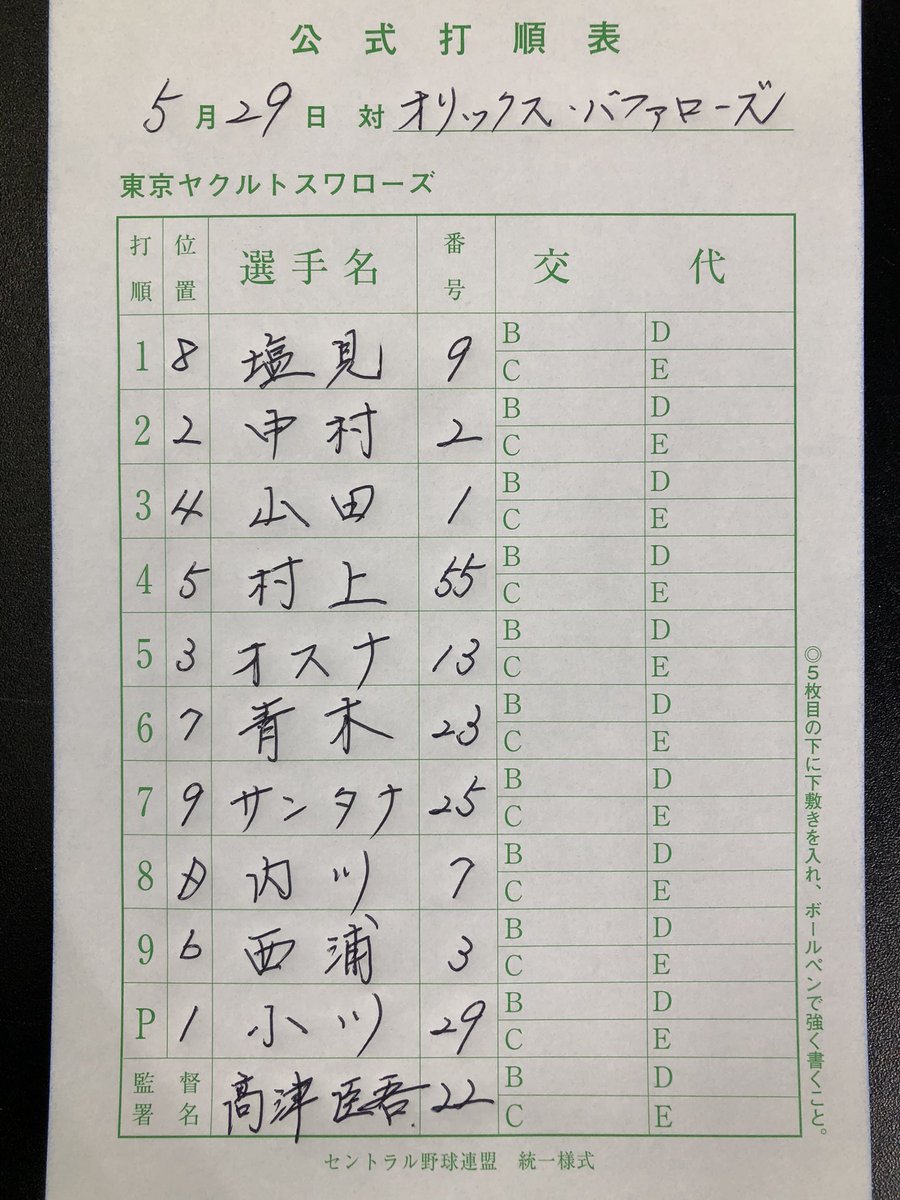 公式打順表
5月29日 対 オリックス・バファローズ
東京ヤクルトスワローズ
打順 位置 選手名 番号 交代
1 8 塩見 9 B D C E
2 2 中村 2 B D C E
3 4 山田 1 B D C E
4 5 村上 55 B D C E
5 3 オスナ 13 B D C E
6 7 青木 23 B D C E
7 9 サンタナ 25 B D C E
8 D 内川 7 B D C E
9 6 西浦 3 B D C E
P 1 小川 29 B D C E
監督署名 高津臣吾 22 B D C E
◎5枚目の下に下敷きを入れ、ボールペンで強く書くこと。
セントラル野球連盟 統一様式